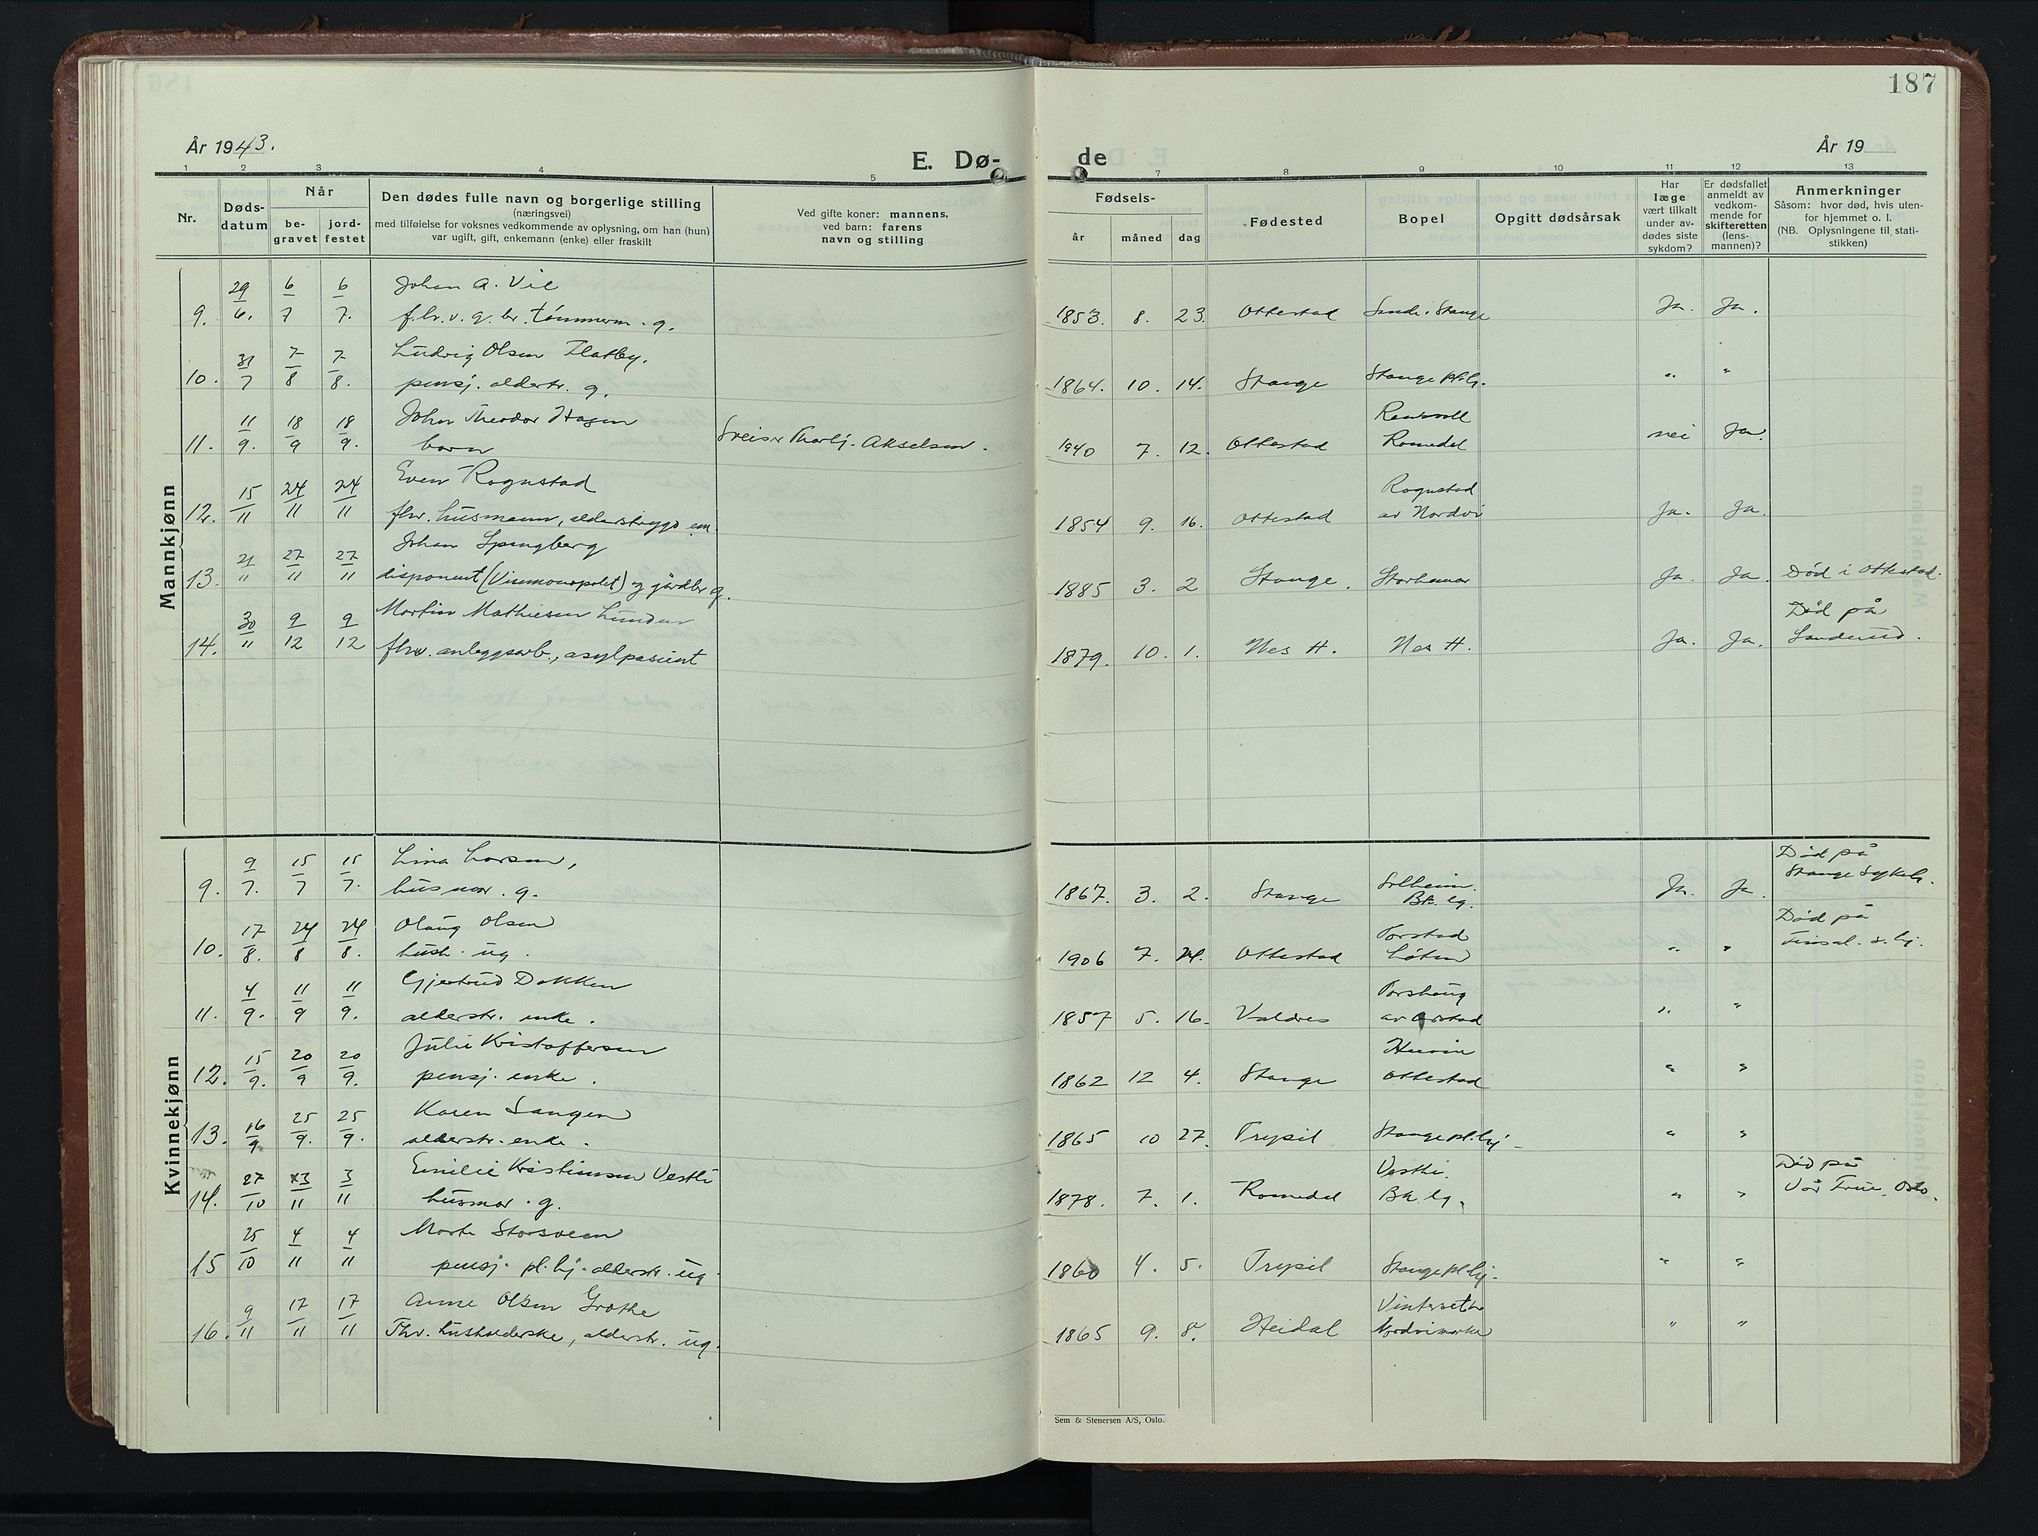 187
År 1943.
E. Dø-
de
År 19
1 2 3 4 5 7 8 9 10 11 12 13
Nr.
Døds-
datum
Når
be-
gravet
jord-
festet
Den dødes fulle navn og borgerlige stilling
(næringsvei)
med tilføielse for voksnes vedkommende av oplysning, om han (hun)
var ugift, gift, enkemann (enke) eller fraskilt
Ved gifte koner: mannens,
ved barn: farens
navn og stilling
Fødsels-
år måned dag
Fødested
Bopel
Opgitt dødsårsak
Har
læge
vært tilkalt
under av-
dødes siste
sykdom?
Er dødsfallet
anmeldt av
vedkom-
mende for
skifteretten
(lens-
mannen)?
Anmerkninger
Såsom: hvor død, hvis uten-
for hjemmet o. l.
(NB. Oplysningene til stati-
stikken)
Mannkjønn
29 6 6 Johan A. Vie
9. 6. 7 7. f.hv. v. g. br. tømmerm. g. 1853. 8. 23. Ottestad Sande i Stange Ja. Ja.
31 7 7 Ludvig Olsen Flatby,
10. 7 8 8. pensj. alderstr. g. 1864. 10. 14. Stange Stange pl.h. " "
11 18 18 John Theodor Hagen
11. 9. 9 9. barn Sveiser Thorlj. Akselsen. 1940 7. 12. Ottestad Romedal nei Ja.
15 24 24 Even Rognstad Rognstad
12. 11 11 11 fhv. husmann, alderstrygd em. 1854 9. 16. Ottestad av Nordvi Ja. Ja.
21 27 27 Johan Spangberg
13. 11 11 11 disponent (Vinmonopolet) og gårdbr g. 1885 3. 2 Stange. Storhamar Ja. Ja. Død i Ottestad.
30 9 9 Martin Mathiesen Lunden Død på
14. 11 12 12 fhv. anleggsarb., asylpasient 1879. 10. 1. Nes H. Nes H. Ja. Ja. Sanderud.
Kvinnekjønn
9 15 15 Lina Larsen, Solheim. Død på
9. 7. 7 7. husmor. g. 1867. 3. 2. Stange Bk. lg. Ja. Ja. Stange Sykeh.
17 24 24 Olaug Olsen Torstad Død på
10. 8. 8 8. hush. ug. 1906 7. 24. Ottestad Løten " " Finsal. s. hj.
4 11 11 Gjertrud Dokken Torshaug
11. 9. 9 9. alderstr. enke. 1857 5. 16. Valdres av Arstad " "
15 20 20 Julie Kristoffersen
12. 9. 9 9. pensj. enke. 1862 12 4. Stange Ottestad " "
16 25 25 Karen Sangen
13. 9 9. 9. alderstr. enke. 1865 10 27. Trysil Stange pl.hj. " "
27 3 3 Emilie Kristiansen Vestli Vestli. Død på
14. 10 11 11 husmor. g. 1878. 7. 1. Romedal Bk. lg. " " Vår Frue, Oslo.
25 4 4 Marte Storsveen
15 10 11 11 pensj. pl.hj. alderstr. ug. 1860 4. 5. Trysil Stange pl.hj. " "
9 17 17 Anne Olsen Grothe Vinterseth
16. 11 11 11 Fhv. husholderske, alderstr. ug. 1865 9. 8. Heidal Nordvimarka " "
Sem & Stenersen A/S, Oslo.